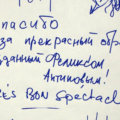 спасибо
за прекрасный обр
зданный Феликсом
Антиповым!
's BON Spectacl